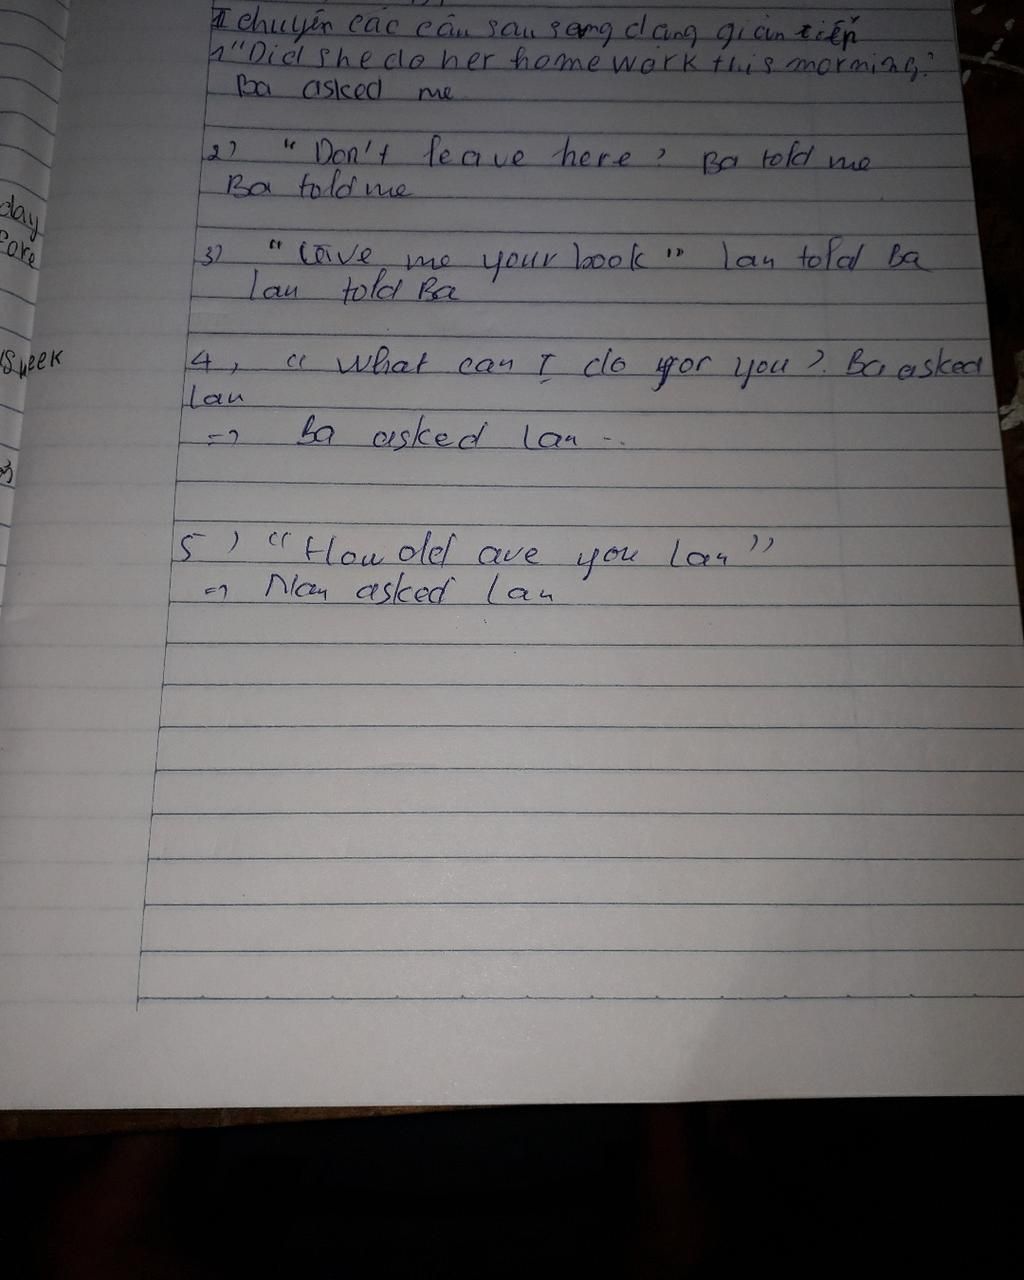 II chuyển các câu sau sang dạng gián tiếp
1) "Did she do her home work this morning?
Ba asked me
2) "Don't leave here? Ba told me
Ba told me
3) "Give me your book" Lan told Ba
Lan told Ba
4, "What can I do for you?. Ba asked
Lan
=> Ba asked Lan ...
5) "How old are you Lan"
=> Nam asked Lan
day
fore
week